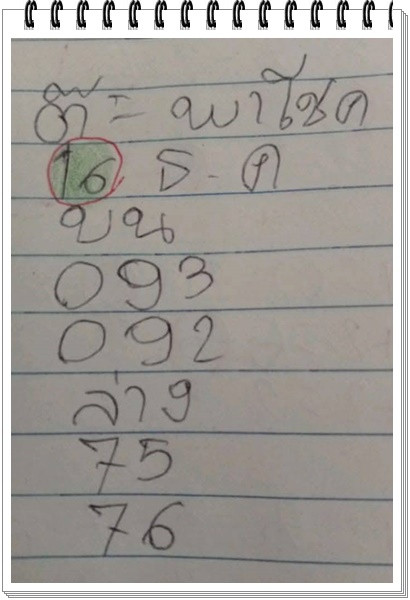 ตี๋ = พาโชค
16 ธ.ค
บน
093
092
ล่าง
75
76